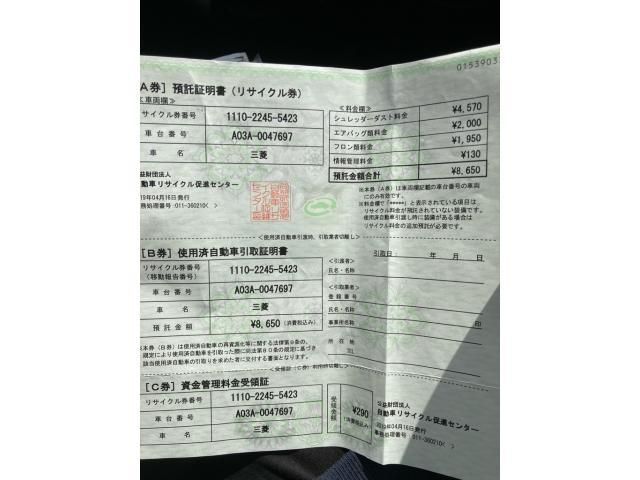 0153903
A券］預託証明書（リサイクル券）
≪車両欄≫
サイクル券番号 1110-2245-5423
車台番号 A03A-0047697
車名 三菱
≪料金欄≫
シュレッダーダスト料金 ¥4,570
エアバッグ類料金 ¥2,000
フロン類料金 ¥1,950
情報管理料金 ¥130
預託金額合計 ¥8,650
益財団法人
動車リサイクル促進センター
019年04月16日発行
務処理番号:011-360210<
※本券（A券）は車両欄記載の車台番号の車両
にのみ有効です。
※料金欄で「*****」と表示されている項目は
リサイクル料金が預託されていない装備です。
使用済自動車引渡し時に装備がある場合は
リサイクル料金の追加預託が必要です。
<使用済自動車引渡時、引取業者切離し>
［B券］使用済自動車引取証明書
引取日： 年 月 日
リサイクル券番号
（移動報告番号） 1110-2245-5423
車台番号 A03A-0047697
車名 三菱
預託金額 ¥8,650 (消費税込み)
<引渡者>
氏名・名称
<引取業者>
登録番号
氏名・名称
事業所名称 印
所在地
TEL
本券（B券）は使用済自動車の再資源化等に関する法律第9条の
規定により使用済自動車を引取った際に同法第80条の規定に基づき
該当使用済自動車の引取りを求めた者に交付する書面となります。
［C券］資金管理料金受領証
リサイクル券番号 1110-2245-5423
車台番号 A03A-0047697
車名 三菱
受領金額 ¥290 (消費税込み)
公益財団法人
自動車リサイクル促進センター
2019年04月16日発行
事務処理番号:011-360210<